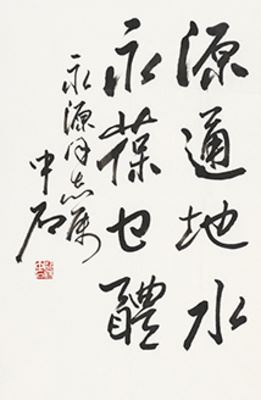 源通地水
永葆醴
永源同志属
中石